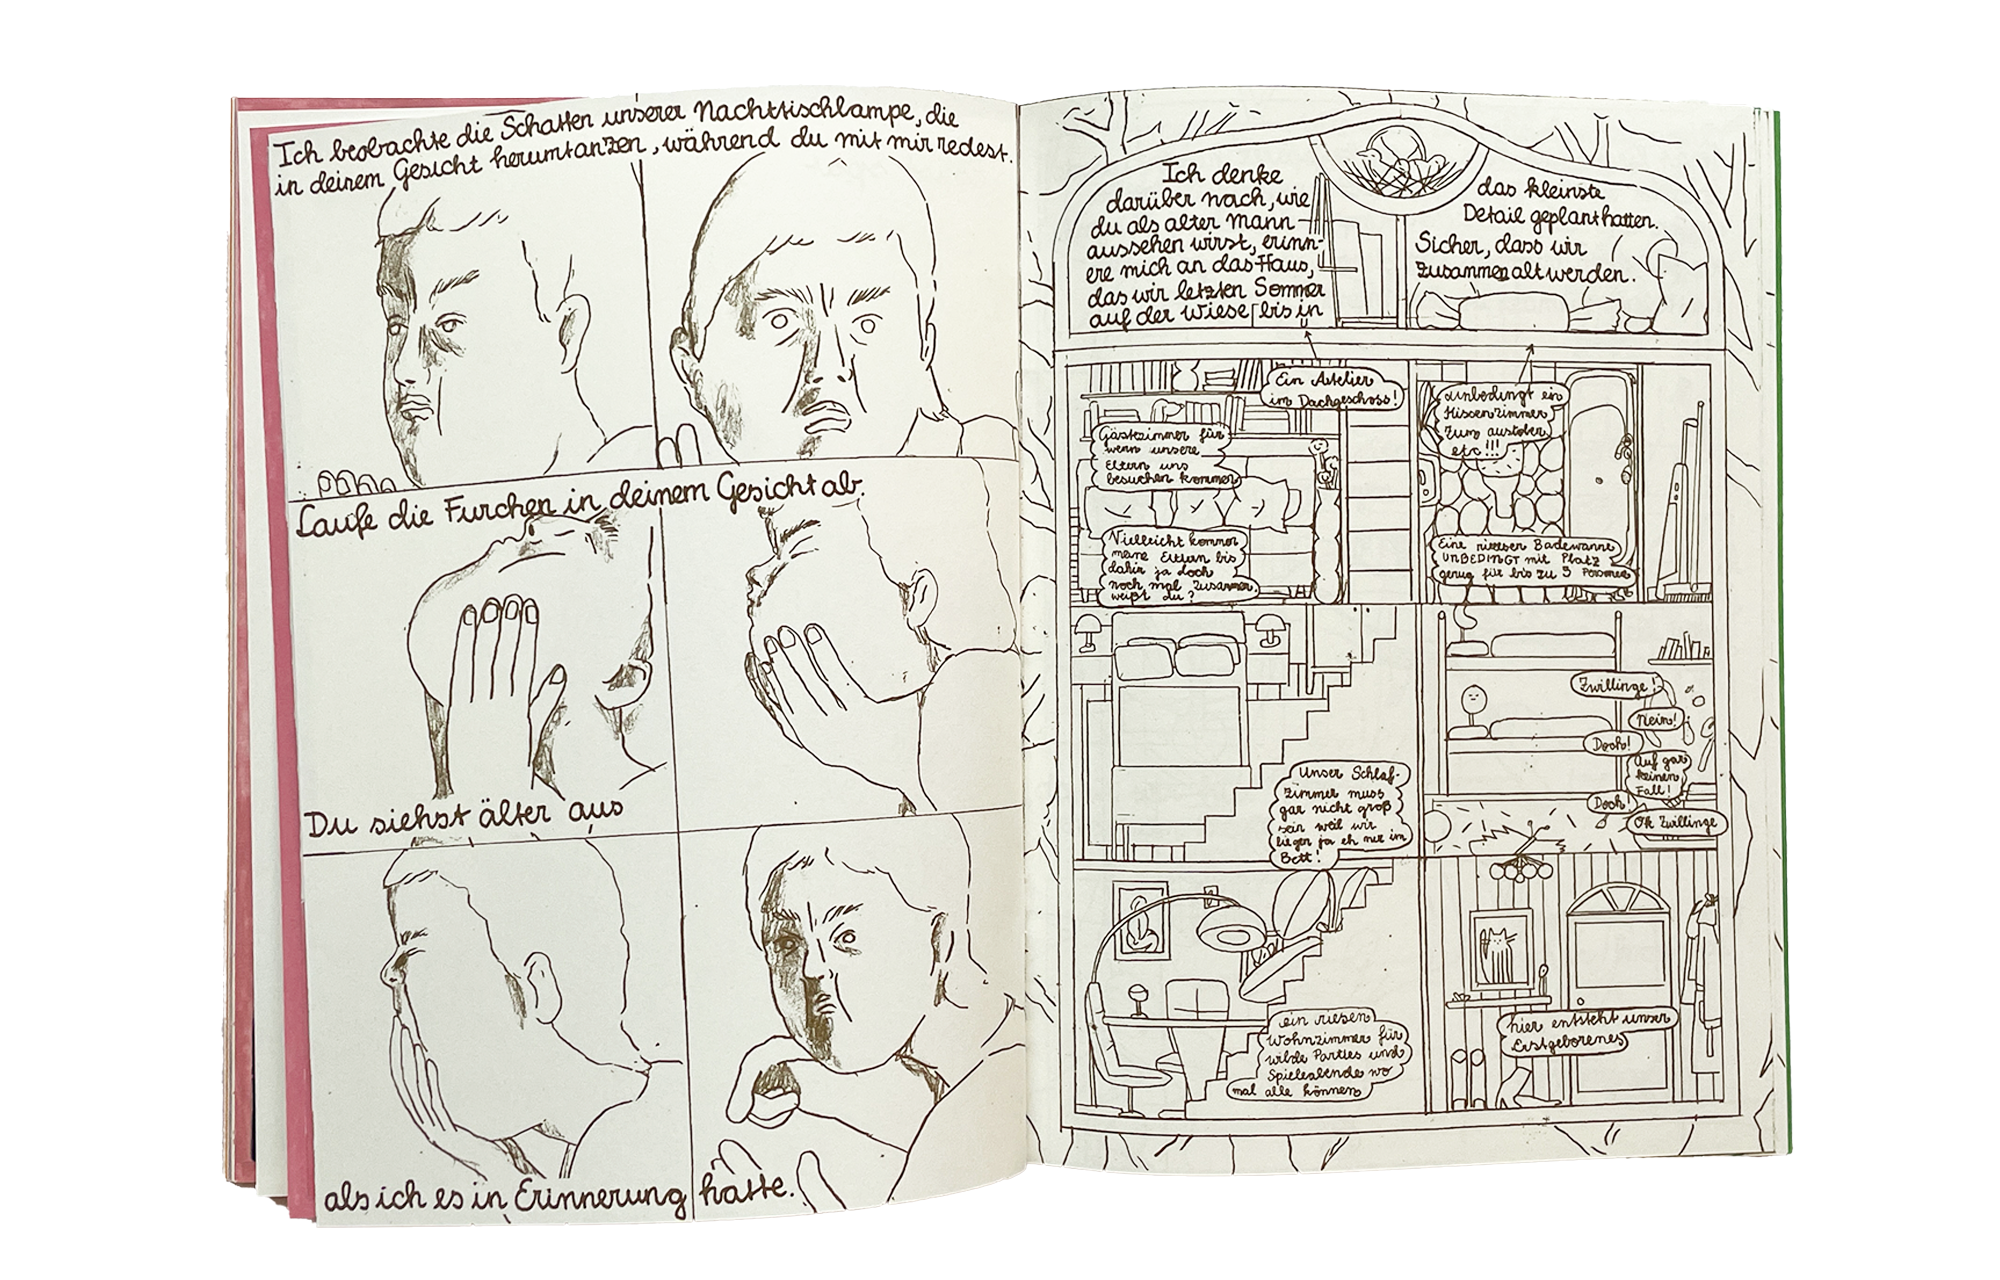 Ich beobachte die Schatten unserer Nachttischlampe, die
in deinem Gesicht herumtanzen, während du mit mir redest.
Laufe die Furchen in deinem Gesicht ab.
Du siehst älter aus
als ich es in Erinnerung hatte.
Ich denke
darüber nach, wie
du als alter Mann
aussehen wirst, erinn-
ere mich an das Haus,
das wir letzten Sommer
auf der Wiese bis in
das kleinste
Detail geplant hatten.
Sicher, dass wir
zusammen alt werden.
Ein Atelier
im Dachgeschoss!
unbedingt ein
Kissenzimmer
zum austoben
etc!!!
Gästezimmer für
wenn unsere
Eltern uns
besuchen kommen
Vielleicht kommen
meine Eltern bis
dahin ja doch
noch mal zusammen,
weißt du?
Eine riesen Badewanne
UNBEDINGT mit Platz
genug für bis zu 5 Personen
Zwillinge!
Nein!
Doch!
Auf gar
keinen
Fall!
Doch!
Ok Zwillinge
Unser Schlaf-
zimmer muss
gar nicht groß
sein weil wir
liegen ja eh nur im
Bett!
ein riesen
Wohnzimmer für
wilde Parties und
Spieleabende wo
mal alle können
hier entsteht unser
Erstgeborenes